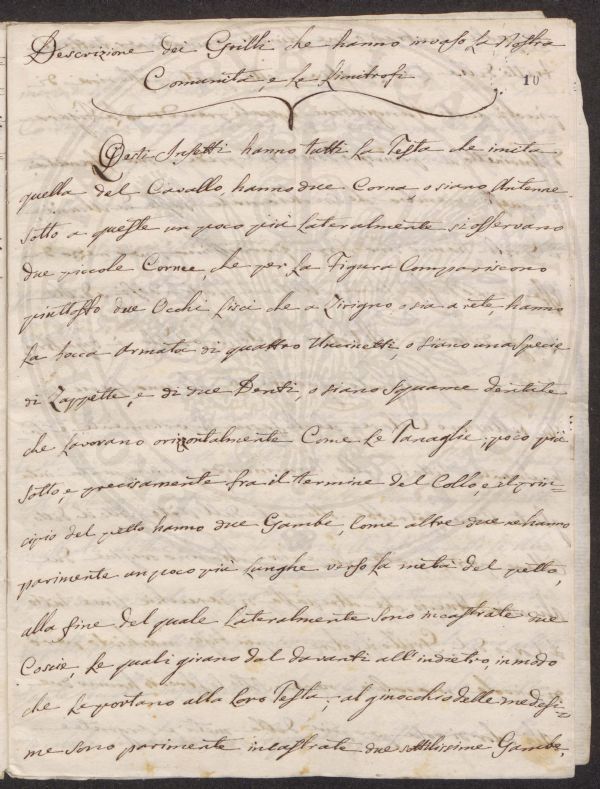 Descrizione dei Grilli che hanno invaso la Nostra
Comunita, e le limitrofi
10
Questi Insetti hanno tutti la Testa che imita
quella del Cavallo, hanno due Corna, o siano Antenne
sotto a queste un poco più lateralmente si osservano
due piccole Cornee, che per la Figura Compariscono
piuttosto due Occhi lisci che a Zirigno o sia a rete hanno
la bocca armata di quattro Uncinetti, o siano una Specie
di Zappette, e di due Denti, o siano Squame dentate
che lavorano orizontalmente Come le Tanaglie; poco più
sotto, e precisamente fra il termine del Collo, e il prin=
cipio del petto hanno due Gambe, Come altre due ne hanno
parimente un poco più lunghe verso la metà del petto,
alla fine del quale lateralmente sono incastrate due
Coscie, le quali girano dal davanti all'indietro in modo
che le portano alla loro Testa; al ginocchio delle medesi=
me sono parimente incastrate due sottilissime Gambe,